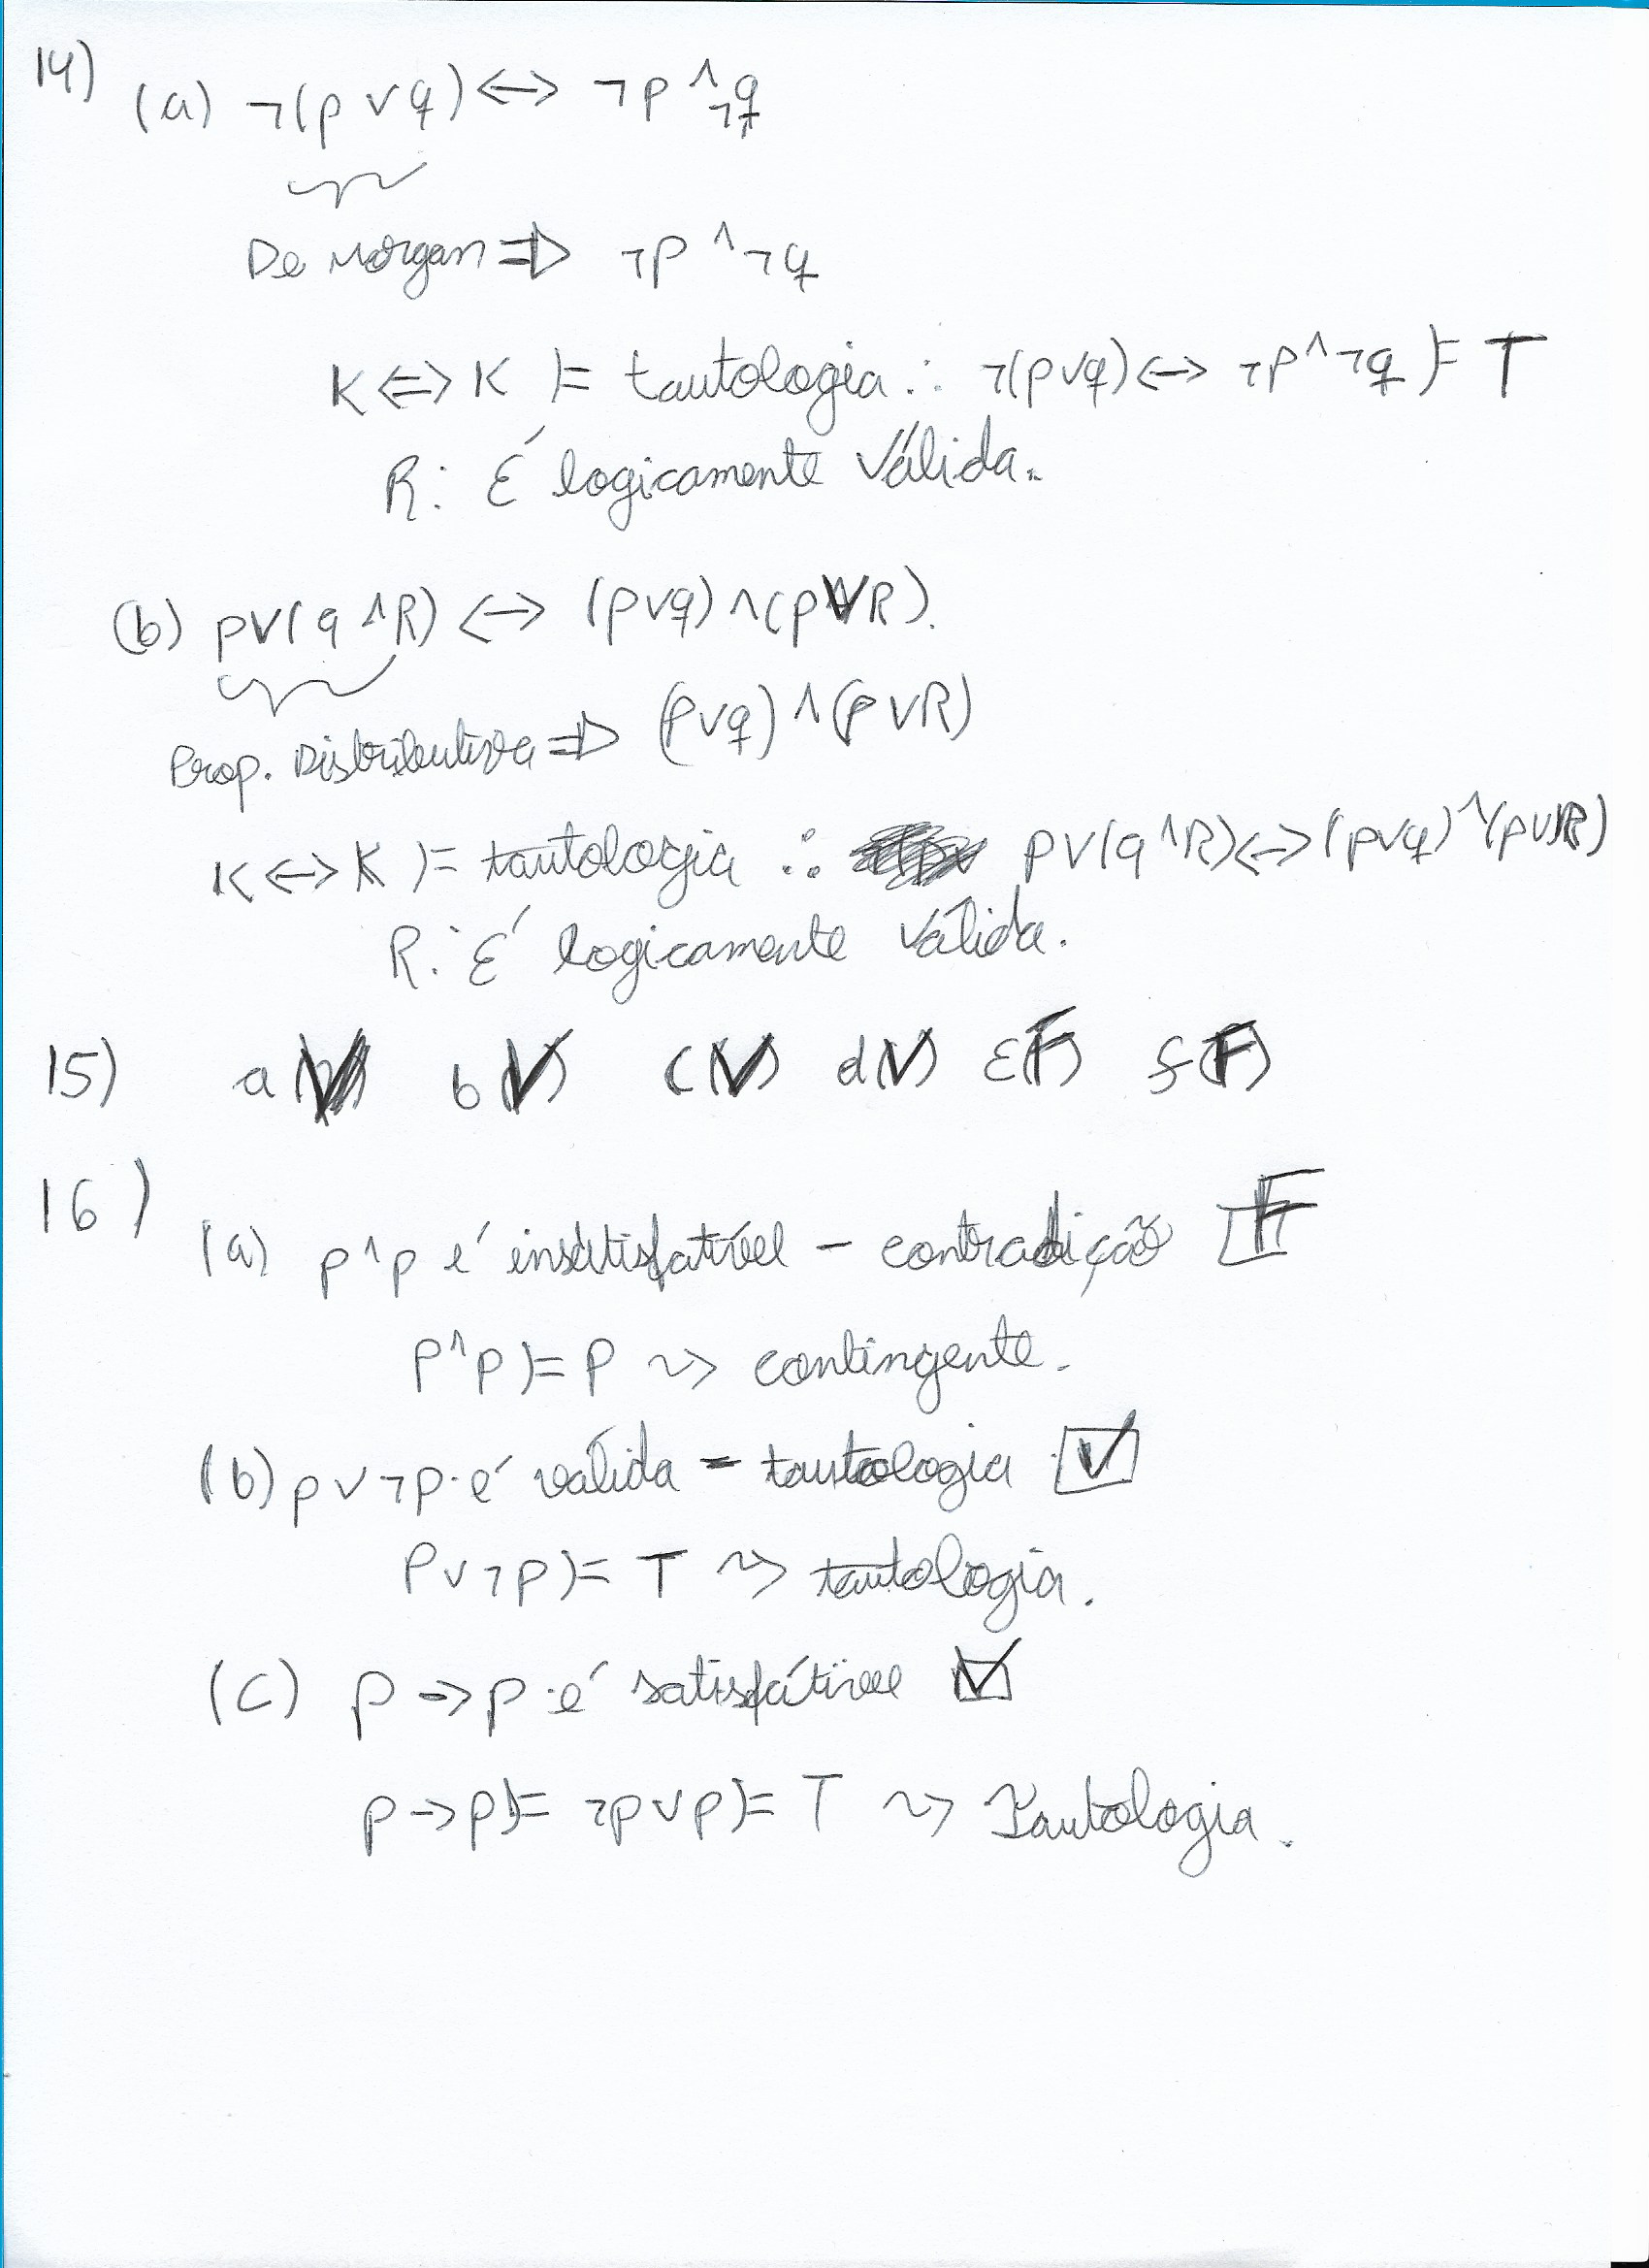 14) (a) ¬(p ∨ q) ↔ ¬p ∧ ¬q
De Morgan ⇒ ¬p ∧ ¬q
K ⇔ K ⊨ tautologia ∴ ¬(p∨q) ↔ ¬p ∧ ¬q ⊨ T
R: É logicamente Válida.
(b) p∨(q ∧ R) ↔ (p∨q) ∧ (p∨R).
Prop. Distributiva ⇒ (p∨q) ∧ (p∨R)
K ↔ K ⊨ tautologia ∴ p∨(q ∧ R) ↔ (p∨q) ∧ (p∨R)
R: É logicamente Válida.
15) a(V) b(V) c(V) d(V) E(F) f(F)
16) (a) p ∧ p é insatisfatível - contradição F
p ∧ p ⊨ p ⇝ contingente.
(b) p ∨ ¬p é válida - tautologia V
p ∨ ¬p ⊨ T ⇝ tautologia.
(c) p → p é satisfátível V
p → p ⊨ ¬p ∨ p ⊨ T ⇝ Tautologia.